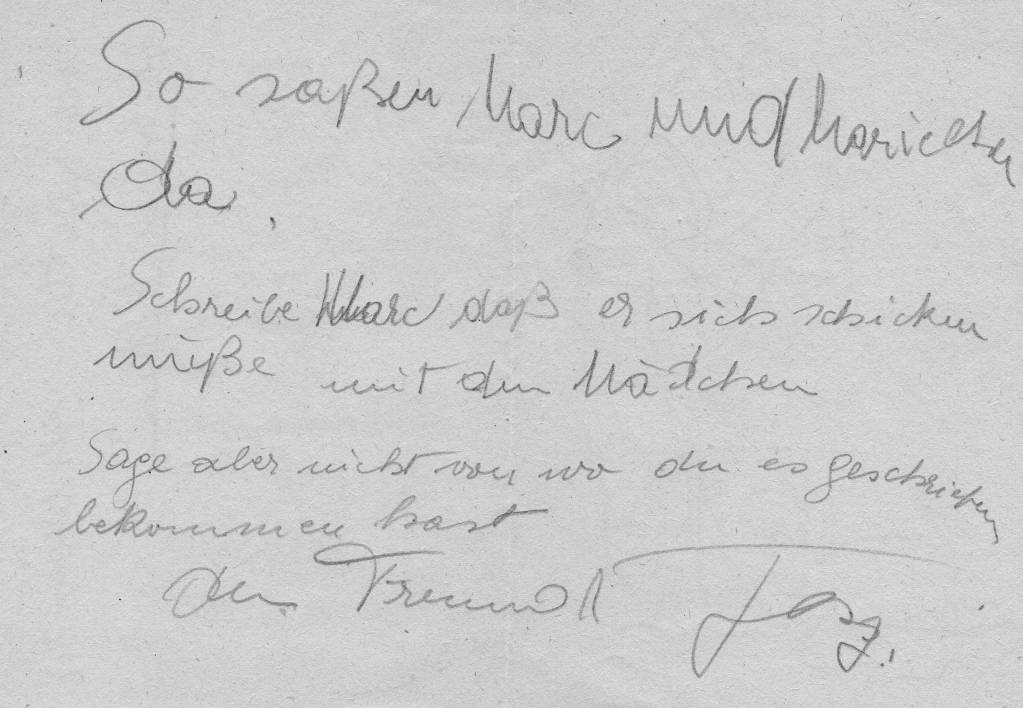 So saßen Marc und Mariechen
da.
Schreibe Marc daß er sich schicken
müße mit den Mädchen
Sage aber nicht von wo du es geschrieben
bekommen hast
dein Freund